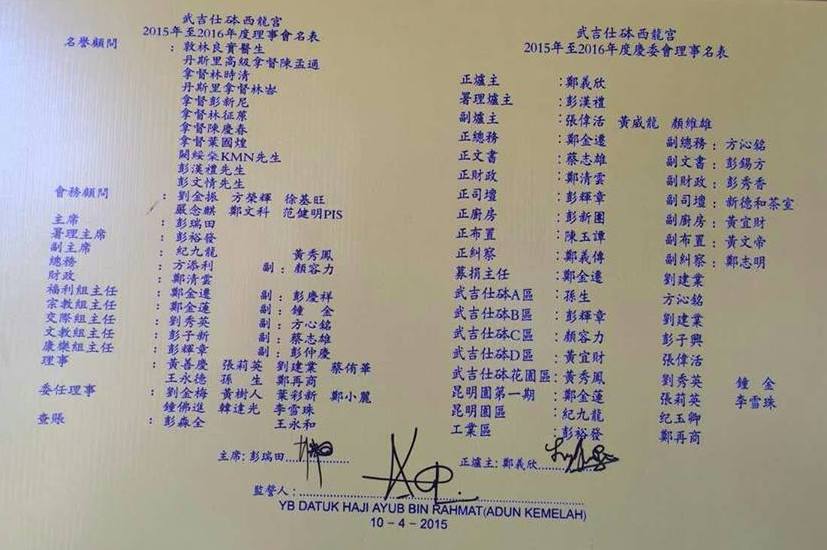 武吉仕砵西龍宮
2015年至2016年度理事會名表
名譽顧問 : 敦林良實醫生
丹斯里高級拿督陳孟通
拿督林時清
丹斯里拿督林岺
拿督彭新尼
拿督林征雁
拿督陳慶春
拿督葉國煌
闕綏朵KMN先生
彭漢禮先生
彭文情先生
會務顧問 : 劉金振 方榮輝 徐基旺
嚴念麒 鄭文科 范健明PIS
主席 : 彭瑞田
署理主席 : 彭裕發
副主席 : 紀九龍 黃秀鳳
總務 : 方添利 副 : 顏容力
財政 : 鄭清雲
福利組主任 : 鄭金遷 副 : 彭慶祥
宗教組主任 : 鄭金蓮 副 : 鐘 金
交際組主任 : 劉秀英 副 : 方心銘
文教組主任 : 彭子新 副 : 蔡志雄
康樂組主任 : 彭輝章 副 : 彭仲慶
理事 : 黃善慶 張莉英 劉建業 蔡侑華
王永德 孫 生 鄭再商
委任理事 : 劉金梅 黃樹人 葉彩新 鄭小麗
鍾佛進 韓達光 李雪珠
查賬 : 彭淼全 王永和
武吉仕砵西龍宮
2015年至2016年度慶委會理事名表
正爐主 : 鄭義欣
署理爐主 : 彭漢禮
副爐主 : 張偉活 黃威龍 顏維雄
正總務 : 鄭金遷 副總務 : 方沁銘
正文書 : 蔡志雄 副文書 : 彭錫方
正財政 : 鄭清雲 副財政 : 彭秀香
正司壇 : 彭輝章 副司壇 : 新德和茶室
正廚房 : 彭新團 副廚房 : 黃宜財
正布置 : 陳玉譚 副布置 : 黃文帝
正糾察 : 鄭義傳 副糾察 : 鄭志明
募捐主任 : 鄭金遷 劉建業
武吉仕砵A區 : 孫生 方沁銘
武吉仕砵B區 : 彭輝章 劉建業
武吉仕砵C區 : 顏容力 彭子興
武吉仕砵D區 : 黃宜財 張偉活
武吉仕砵花園區 : 黃秀鳳 劉秀英 鐘 金
昆明園第一期 : 鄭金蓮 張莉英 李雪珠
昆明園區 : 紀九龍 紀玉卿
工業區 : 彭裕發 鄭再商
主席 : 彭瑞田
正爐主 : 鄭義欣
監誓人 :
YB DATUK HAJI AYUB BIN RAHMAT(ADUN KEMELAH)
10 – 4 – 2015